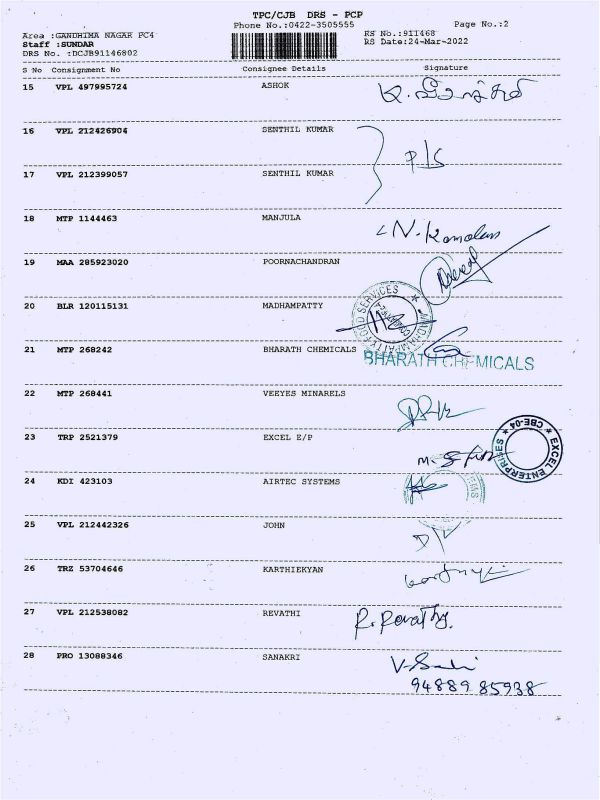 TPC/CJB DRS - PCP
Phone No.:0422-3505555 Page No.:2
Area :GANDHIMA NAGAR PC4 RS No.:911468
Staff :SUNDAR RS Date:24-Mar-2022
DRS No. :DCJB91146802
S No Consignment No Consignee Details Signature
15 VPL 497995724 ASHOK
16 VPL 212426904 SENTHIL KUMAR
17 VPL 212399057 SENTHIL KUMAR
18 MTP 1144463 MANJULA
19 MAA 285923020 POORNACHANDRAN
20 BLR 120115131 MADHAMPATTY
MADHAMPATTY FOOD SERVICES
21 MTP 268242 BHARATH CHEMICALS
BHARATH CHEMICALS
22 MTP 268441 VEEYES MINARELS
23 TRP 2521379 EXCEL E/P
EXCEL ENTERPRISES CBE-04
24 KDI 423103 AIRTEC SYSTEMS
25 VPL 212442326 JOHN
26 TRZ 53704646 KARTHIEKYAN
27 VPL 212538082 REVATHI R. Revathy.
28 PRO 13088346 SANAKRI
94889 85938